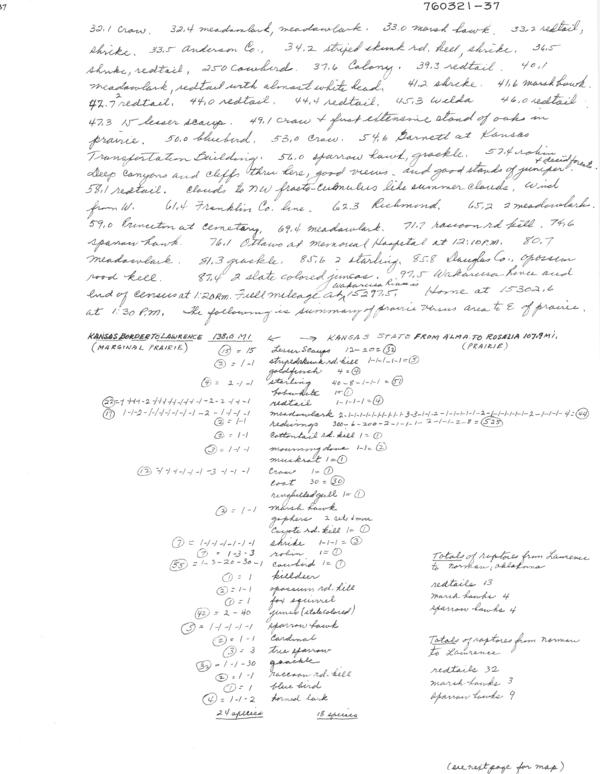 37
760321-37
32.1 crow. 32.4 meadowlark, meadowlark. 33.0 marsh hawk. 33.2 redtail,
shrike. 33.5 Anderson Co., 34.2 striped skunk rd. kill, shrike. 36.5
shrike, redtail, 250 cowbirds. 37.6 Colony. 39.3 redtail. 40.1
meadowlark, redtail with almost white head. 41.2 shrike. 41.6 marsh hawk.
42.7 2 redtail. 44.0 redtail. 44.4 redtail. 45.3 Welda 46.0 redtail
47.3 15 lesser scaup. 49.1 crow + first extensive stand of oaks in
prairie. 50.0 bluebird. 53.0 crow. 54.6 Garnett at Kansas
Transportation Building. 56.0 sparrow hawk, grackle. 57.4 robin
deep canyons and cliffs thru here, good views. and good stands of juniper
58.1 redtail. clouds to NW fracto-cumulus like summer clouds. Wind
from W. 61.4 Franklin Co. line. 62.3 Richmond. 65.2 2 meadowlarks.
59.0 Princeton at cemetary, 69.4 meadowlark. 71.7 raccoon rd kill. 74.6
sparrow hawk 76.1 Ottawa at Memorial Hospital at 12:10 P.M. 80.7
meadowlark. 81.3 grackle. 85.6 2 starling. 85.8 Douglas Co., opossum
road kill. 87.4 2 slate colored juncos. 97.5 Wakarusa River and
end of census at 1:20 P.M. Full mileage at Wakarusa River is 15297.5. Home at 15302.6
at 1:30 P.M. The following is summary of prairie versus area to E of prairie.
KANSAS BORDER TO LAWRENCE 138.0 MI ← → KANSAS STATE FROM ALMA TO ROSALIA 107.9 Mi.
(MARGINAL PRAIRIE) (PRAIRIE)
15 = 15 Lesser Scaups 12-20=32
2 = 1-1 striped skunk rd. kill 1-1-1-1-1=5
goldfinch 4=4
4 = 2-1-1 starling 40-8-1-1-1=51
bobwhite 1=1
redtail 1-1-1-1=4
meadowlark
2=1-1 redwings 525
2 = 1-1 cottontail rd. kill 1=1
3 = 1-1-1 mourning dove 1-1=2
muskrat 1=1
crow 1=1
coot 30=30
ringbilled gull 1=1
2 = 1-1 marsh hawk
gophers
coyote rd. kill 1=1
7 = 1-1-1-1-1-1-1 shrike 1-1-1=3
7 = 1-3-3 robin 1=1
55 = 1-3-20-30-1 cowbird 1=1
1 = 1 killdeer
2 = 1-1 opossum rd. kill
1 = 1 fox squirrel
42 = 2-40 junco (slate colored)
5 = 1-1-1-1-1 sparrow hawk
2 = 1-1 cardinal
3 = 3 tree sparrow
32 = 1-1-30 grackle
2 = 1-1 raccoon rd. kill
1 = 1 blue bird
4 = 1-1-2 horned lark
24 species 18 species
Totals of raptores from Lawrence
to Norman, Oklahoma
redtails 13
marsh hawks 4
sparrow hawks 4
Totals of raptores from Norman
to Lawrence
redtails 32
marsh hawks 3
sparrow hawks 9
(see next page for map)